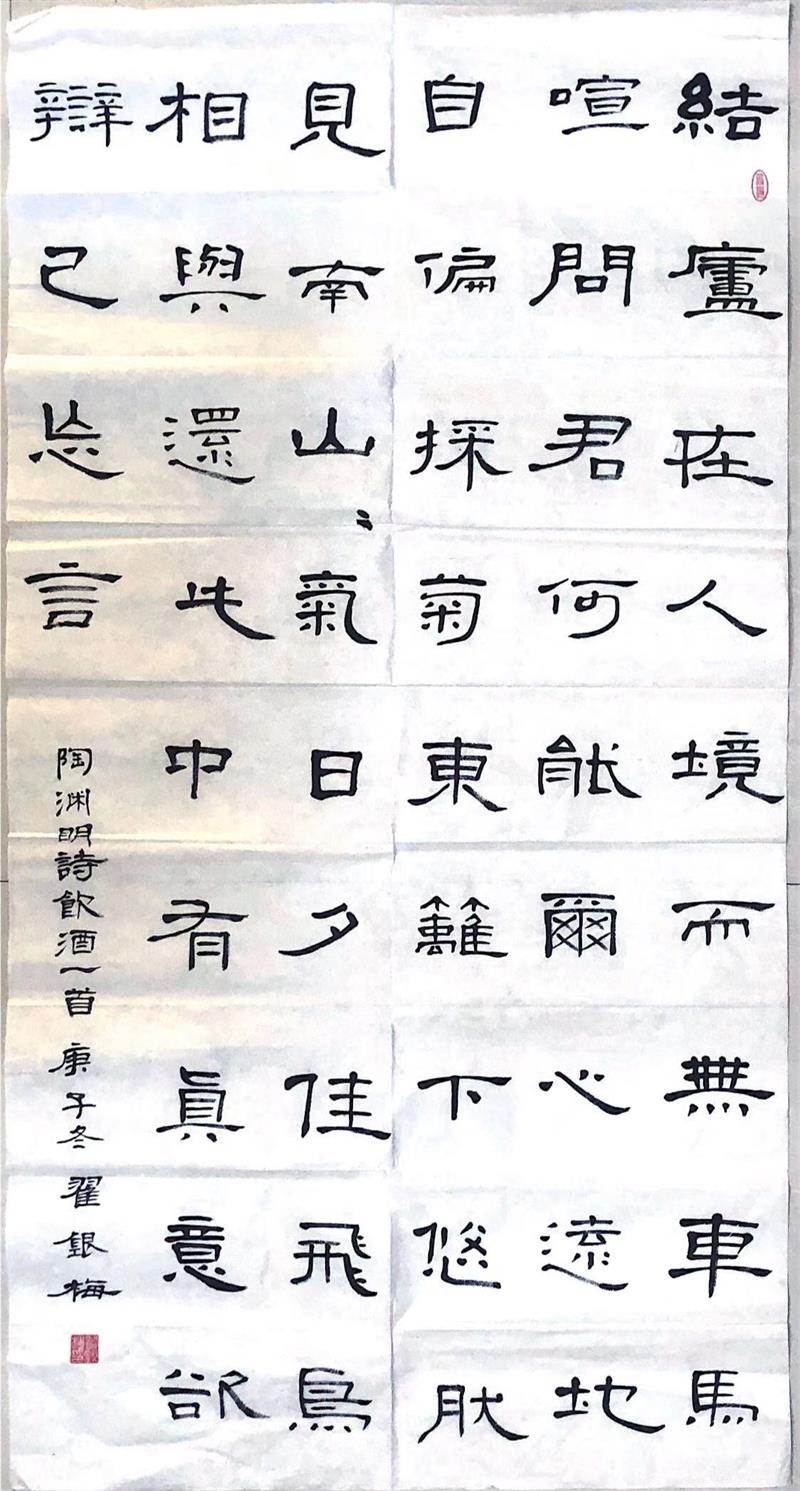 結廬在人境而無車馬
喧問君何能爾心遠地
自偏採菊東籬下悠肰
見南山〻氣日夕佳飛鳥
相與還此中有眞意欲
辯已忘言
陶渊明詩飲酒一首 庚子冬 翟銀梅